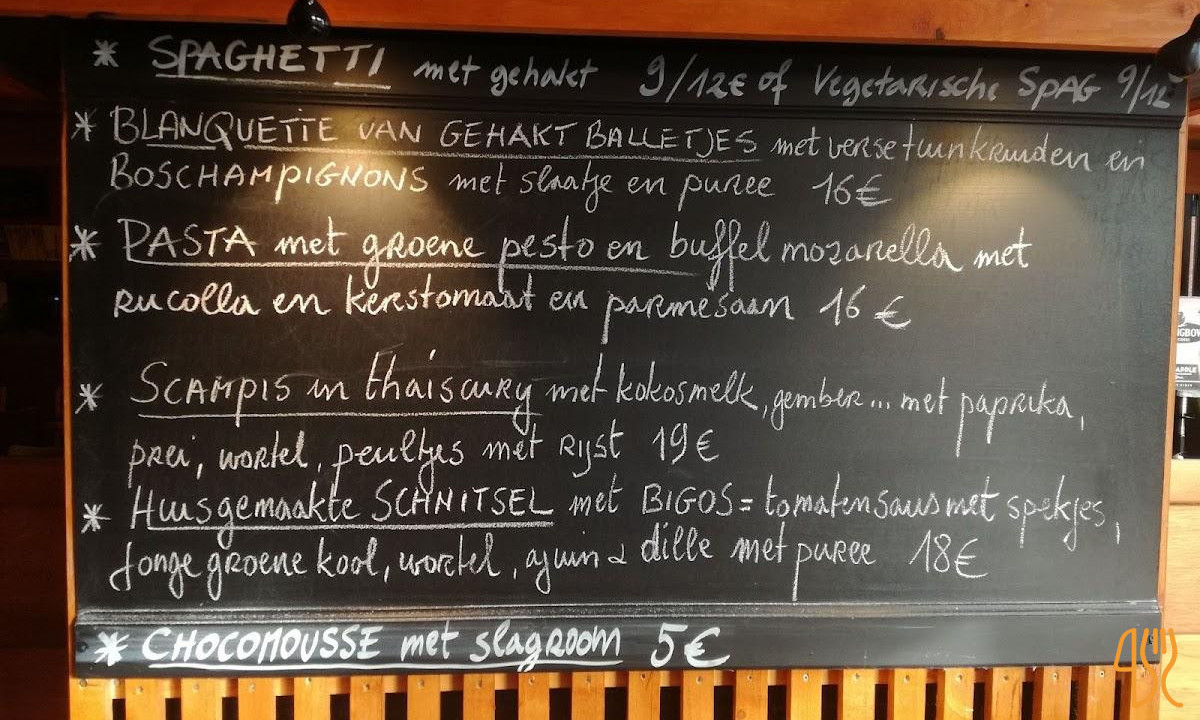 * SPAGHETTI met gehakt 9/12€ of Vegetarische SPAG 9/12
* BLANQUETTE VAN GEHAKT BALLETJES met verse tuinkruiden en
BOSCHAMPIGNONS met slaatje en puree 16€
* PASTA met groene pesto en buffel mozarella met
rucolla en kerstomaat en parmesaan 16€
* SCAMPIS in thaiscurry met kokosmelk, gember... met paprika,
prei, wortel, peultjes met Rijst 19€
* Huisgemaakte SCHNITSEL met BIGOS = tomatensaus met spekjes,
Jonge groene kool, wortel, ajuin & dille met puree 18€
* CHOCOMOUSSE met slagroom 5€